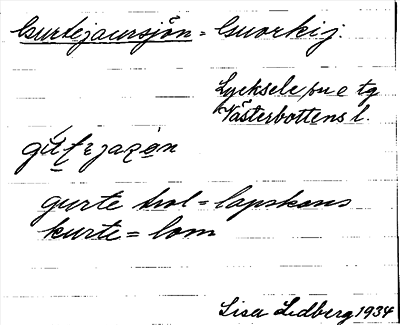 Gurtejaursjön = Guorkij.
Lycksele sn o tg
Västerbottens l.
gurte trol = lapskans
kurte = lom
Lisa Lidberg 1934